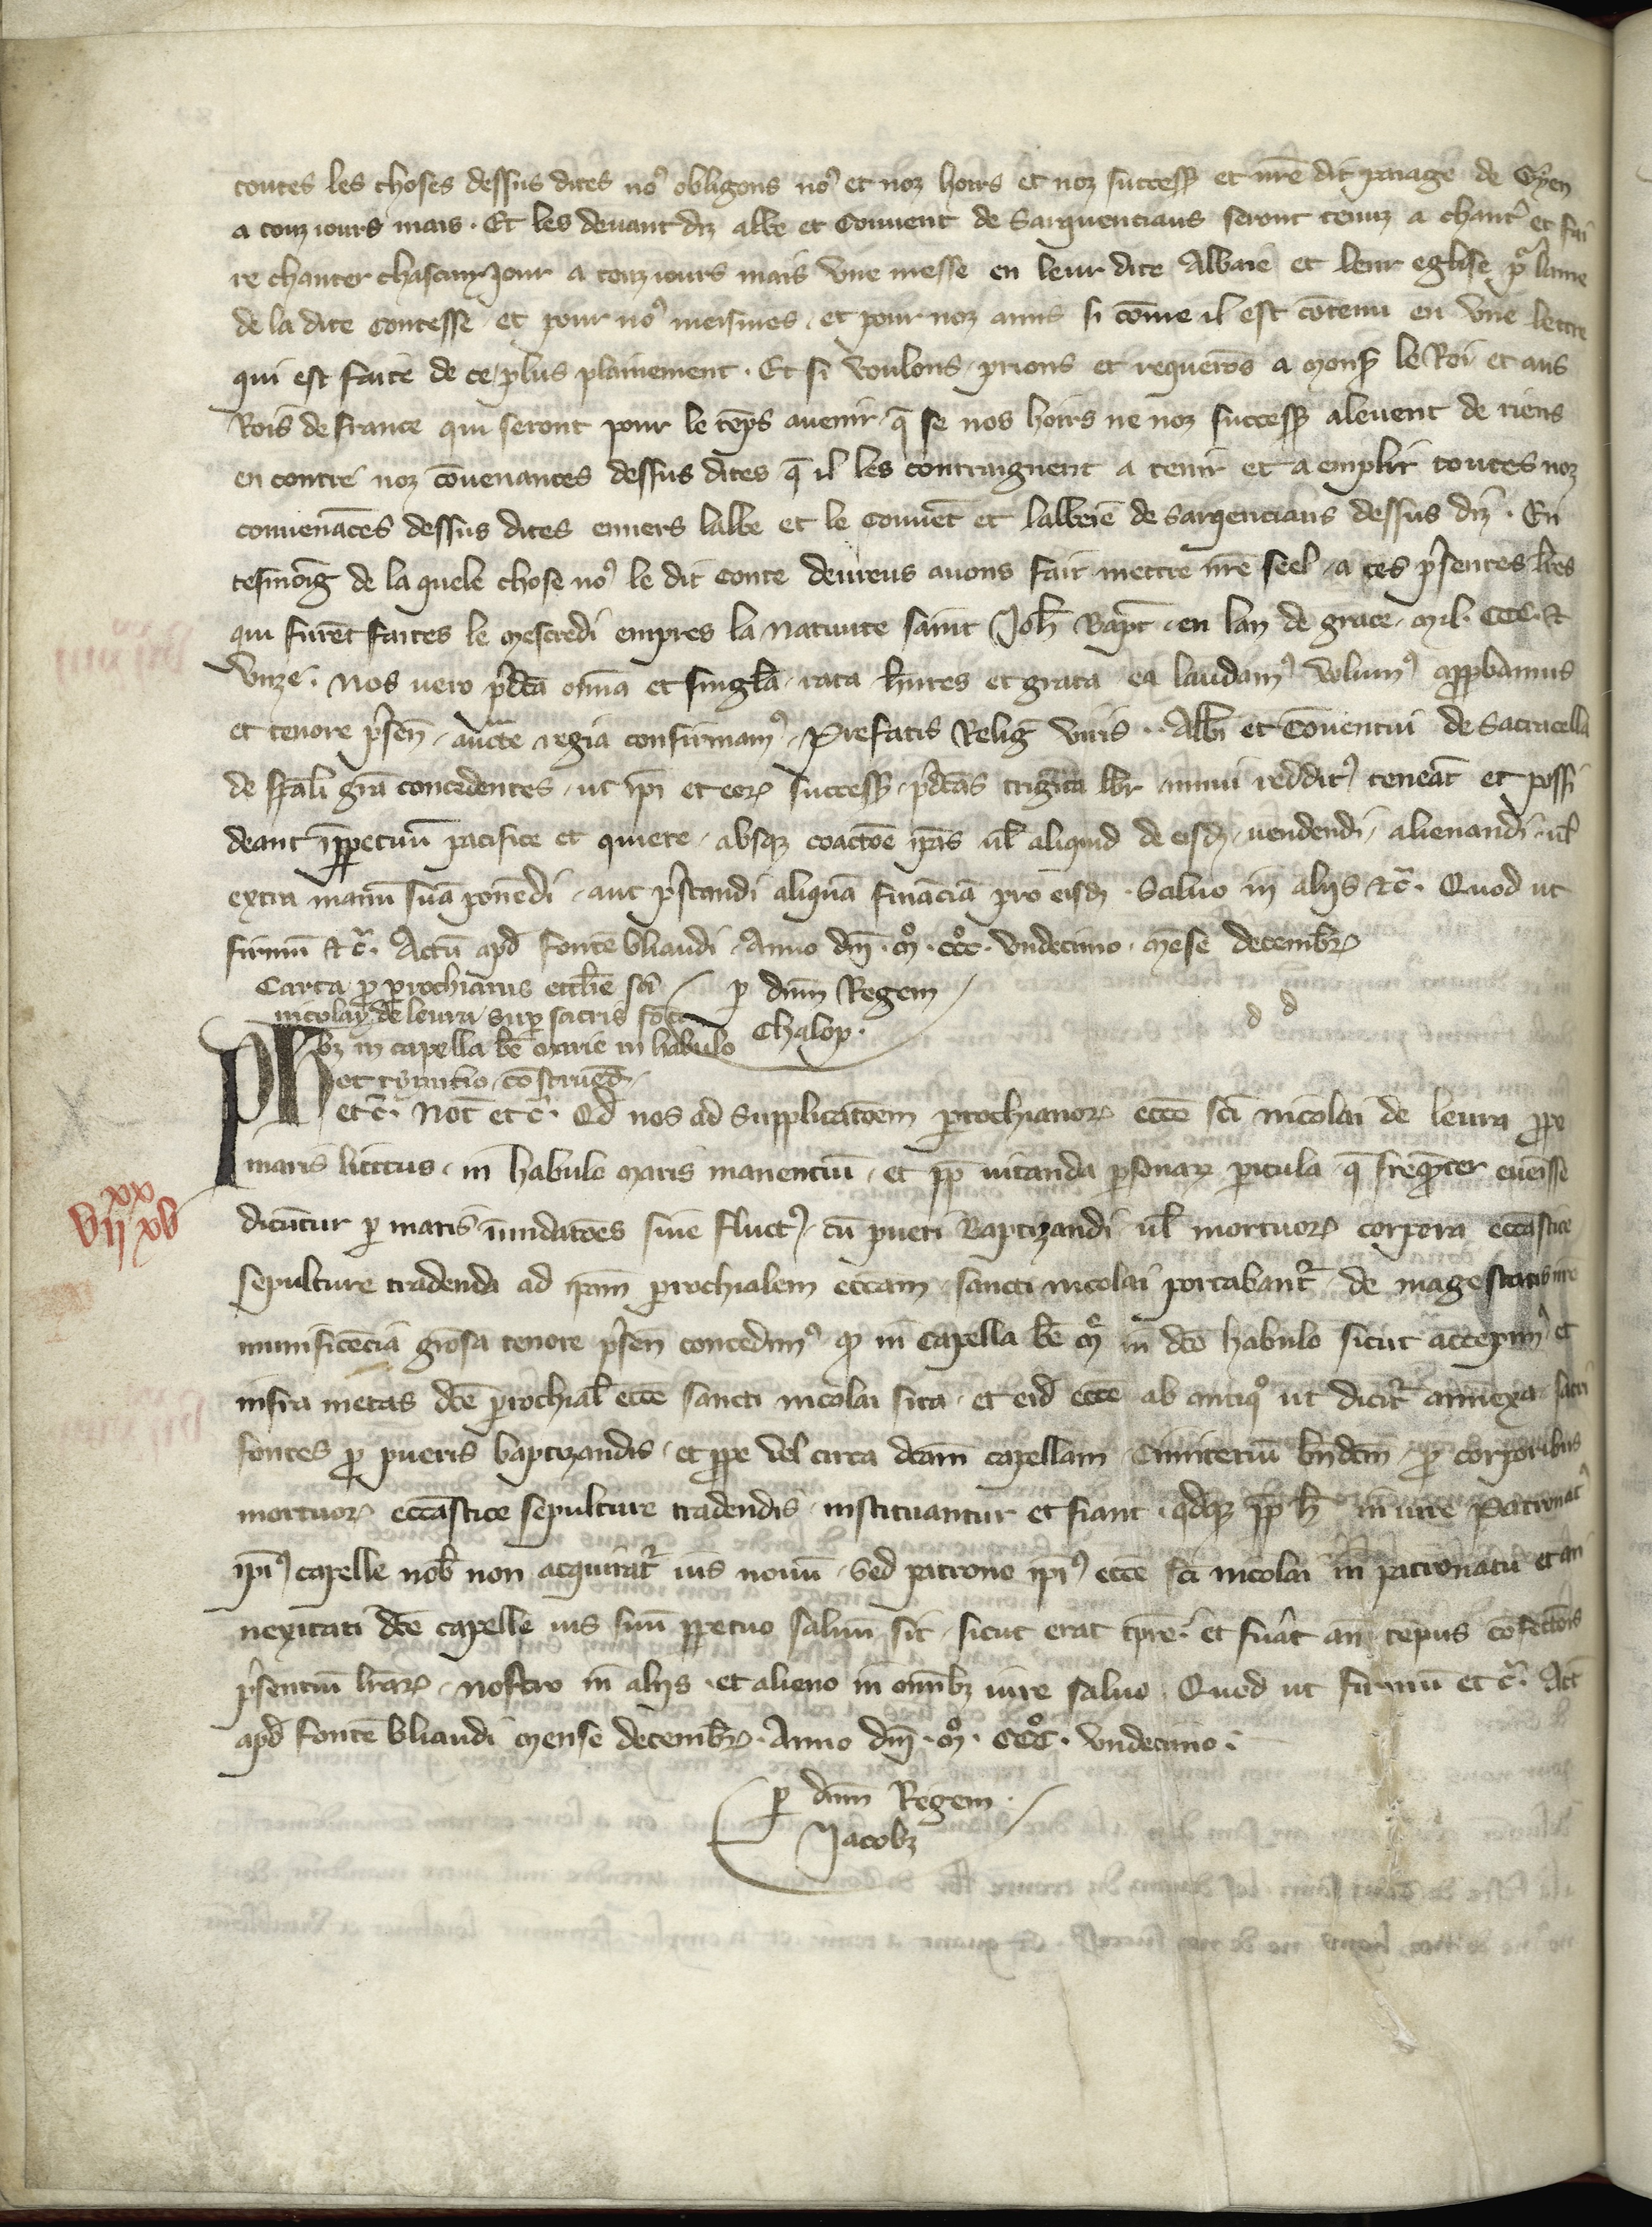 toutes les choses dessus dites no⁹ obligons no⁹ et noz hoirs et noz success̃ et nr̃e dit paiage de Gyen
a touz iours mais. Et les deuant diz abbe et Conuent de Sarquenciaus seront tenuz a chant̾ et fai
re chanter chascun Jour a touz iours mais vne messe en leur dite Abbaie et leur eglise pᵒ lame
de la dite Contesse et pour no⁹ meismes, et pour noz amis si cõme il est cõtenu en vne lettre
qui est faite de ce plus plainement. Et si voulons, prions et requerõs a Monss̃ le Roi et aus
Rois de france qui seront pour le tẽps auenir q̃ se nos hoirs ne noz success̃ aleuent de riens
en contre noz cõuenances dessus dites q̃ il les contraignent a tenir et a emplir toutes noz
conuenãces dessus dites enuers labbe et le Conuẽt et labbeie de Sarqenciaus dessus diz. En
tesmoig̃ de la quele chose no⁹ le dit Conte deureus auons fait mettre nr̃e seel a ces p̾sentes lr̃es
qui furẽt faites le Mescredi empres la Natiuite saint Joh̃ Bapt̃. en lan de grace. Mil. CCC. et
vnze. Nos uero p̾dc̃a om̃ia et singl̃a, rata hñtes et grata ea laudam⁹ volum⁹ app̃bamus
et tenore p̾sen̄, auct̃e regia confirmam⁹. Prefatis Relig̃ viris .. Abb̃i et Cõuentui de Sacracella
de sp̃ali gr̃a concedentes, ut ip̃i et eoꝝ success̃, p̾dc̃as trigĩta libr̃ annui reddit⁹ teneãt et possi
deant imp̱petuũ pacifice et quiete, absqꝫ coact̃oe ip̃as ul̃ aliquid de eisd̃, uendendi, alienandi, ul̃
extra manũ suã ponẽdi, aut p̾standi aliquã finãciã pro eisd̃. Saluo in alijs etc̃. Quod ut
firmũ etc̃. Actũ ap̃d fontẽ bliaudi. Anno dñi. Mᵒ. CCCᵒ. vndecimo. Mẽse decembr̃
Carta p̱ p̱rochianis eccl̃ie sc̃i
nicolay de leura sup̱ sacris fõti
bꝫ in capella bẽ marie in habulo
et cymitio construẽd̃.
p̱ dñm Regem
Chalop.
d d
Ph
etc̃. Not̃ etc̃. Qd̃ nos ad supplicat̃oem p̱rochianoꝝ ecc̃e sc̃i Nicolai de leura p̱pe
maris littus, in habulo maris manentiũ, et pp̃ uitanda p̱sonaꝝ p̱icula, q̃ freqñter euẽisse
dicũtur p̱ maris inũdat̃oes siue fluct⁹, cũ pueri Baptizandi ul̃ mortuoꝝ corpora ecc̃astice
sepulture tradenda ad ip̃am p̱rochialem ecc̃am sancti Nicolai portabant̾, de magestatis nr̃e
munificẽcia gr̃osa tenore p̾sen̄ concedim⁹ qᵒ in Capella bẽ Mᵉ in dc̃o habulo sicut accepim⁹ et
infra metas dc̃e p̱rochial̃ ecc̃e sancti Nicolai sita, et eid̃ ecc̃e ab antiqᵒ ut dicit̾ annexa sacri
fontes p̱ pueris baptizandis, et p̱pe uel circa dc̃am capellam, Cimiteriũ bñdc̃m p̱ corporibus
mortuoꝝ ecc̃astice sepulture tradendis instituantur et fiant, qdqꝫ pp̃ h̃ in iure Patronat⁹
ip̃i⁹ capelle nob̃ non acquirat̾ ius nouũ, Sed patrono ip̃i⁹ ecc̃e sc̃i Nicolai in patronatu et an
nexitati dc̃e capelle ius suũ p̱petuo saluũ sit sicut erat tp̃re et fu̾at añ tẽpus cõfect̃ois
p̾sentiũ lr̃aꝝ, Nostro in alijs et alieno in om̃ibꝫ iure saluo. Quod ut firmũ etc̃. Act̃
ap̃d fontẽ bliaudi Mense decembr̃. Anno dñi. Mᵒ. CCCᵒ. vndecimo.
p̱ dñm Regem.
Jacobꝫ